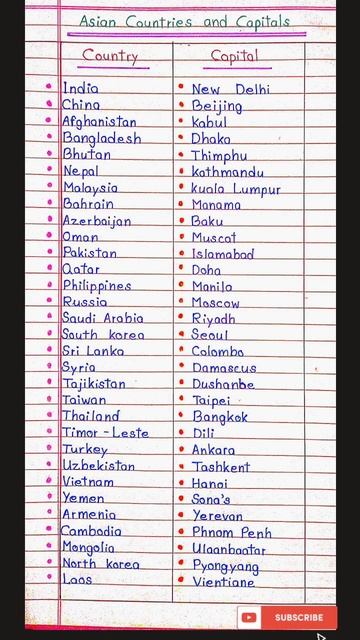 Asian Countries and Capitals
Country Capital
India New Delhi
China Beijing
Afghanistan Kabul
Bangladesh Dhaka
Bhutan Thimphu
Nepal Kathmandu
Malaysia Kuala Lumpur
Bahrain Manama
Azerbaijan Baku
Oman Muscat
Pakistan Islamabad
Qatar Doha
Philippines Manila
Russia Moscow
Saudi Arabia Riyadh
South Korea Seoul
Sri Lanka Colombo
Syria Damascus
Tajikistan Dushanbe
Taiwan Taipei
Thailand Bangkok
Timor-Leste Dili
Turkey Ankara
Uzbekistan Tashkent
Vietnam Hanoi
Yemen Sana's
Armenia Yerevan
Cambodia Phnom Penh
Mongolia Ulaanbaatar
North Korea Pyongyang
Laos Vientiane
SUBSCRIBE